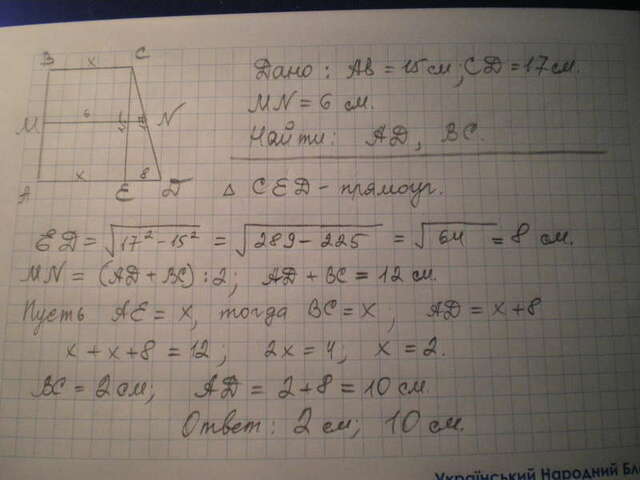 B x C
Дано: AB = 15 см; CD = 17 см.
M 6 N
MN = 6 см.
Найти: AD, BC.
x 8
A E D
△ CED - прямоуг.
ED = √17² - 15² = √289 - 225 = √64 = 8 см.
MN = (AD + BC) : 2; AD + BC = 12 см.
Пусть AE = x, тогда BC = x; AD = x + 8
x + x + 8 = 12; 2x = 4; x = 2.
BC = 2 см; AD = 2 + 8 = 10 см.
Ответ: 2 см; 10 см.
Український Народний